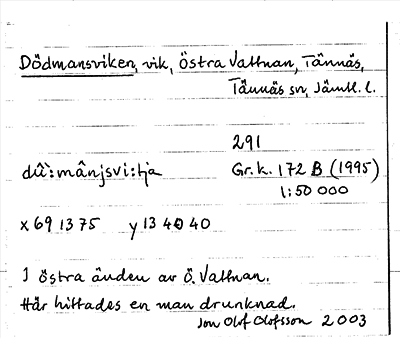 Dödmansviken, vik, östra Vattnan, Tännäs,
Tännäs sn, Jämtl. l.
291
dû`:mânjsvi:tja Gr.k. 172 B (1995)
1:50 000
x 69 13 75 y 13 40 40
I östra änden av Ö. Vattnan.
Här hittades en man drunknad.
Jon Olof Olofsson 2003